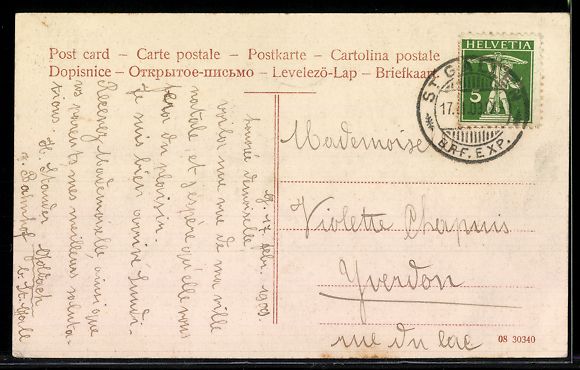 Post card – Carte postale – Postkarte – Cartolina postale
Dopisnice – Открытое-письмо – Levelező-Lap – Briefkaart
HELVETIA
5
ST. G
17.
BRF. EXP.
G. 17 febr. 1909.
Honorée demoiselle
voilà une vue de ma ville
natale, et j'espère qu'elle vous
fera du plaisir.
Je suis bien arrivé lundi.
Recevez Mademoiselle, ainsi que
vos parents mes meilleurs saluta-
tions. H.
b. St. Gall
Mademoiselle
Violette Chapuis
Yverdon
rue du lac
08 30340